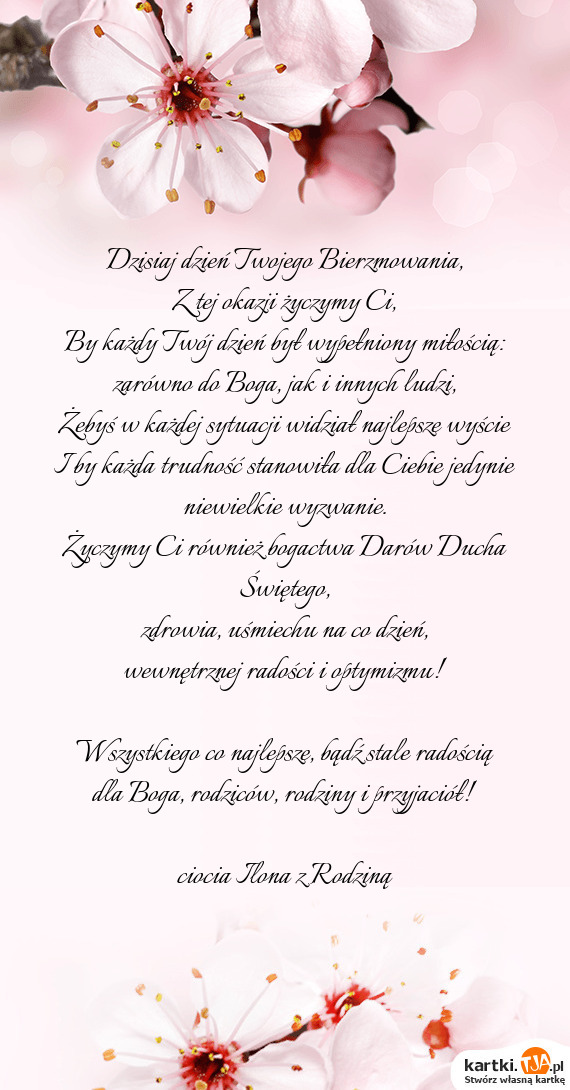 Dzisiaj dzień Twojego Bierzmowania,
Z tej okazji życzymy Ci,
By każdy Twój dzień był wypełniony miłością:
zarówno do Boga, jak i innych ludzi,
Żebyś w każdej sytuacji widział najlepsze wyście
I by każda trudność stanowiła dla Ciebie jedynie
niewielkie wyzwanie.
Życzymy Ci również bogactwa Darów Ducha
Świętego,
zdrowia, uśmiechu na co dzień,
wewnętrznej radości i optymizmu!
Wszystkiego co najlepsze, bądź stale radością
dla Boga, rodziców, rodziny i przyjaciół!
ciocia Ilona z Rodziną
kartki.TJA.pl
Stwórz własną kartkę